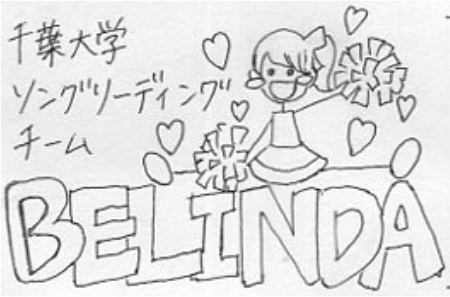 千葉大学
ソングリーディング
チーム
BELINDA